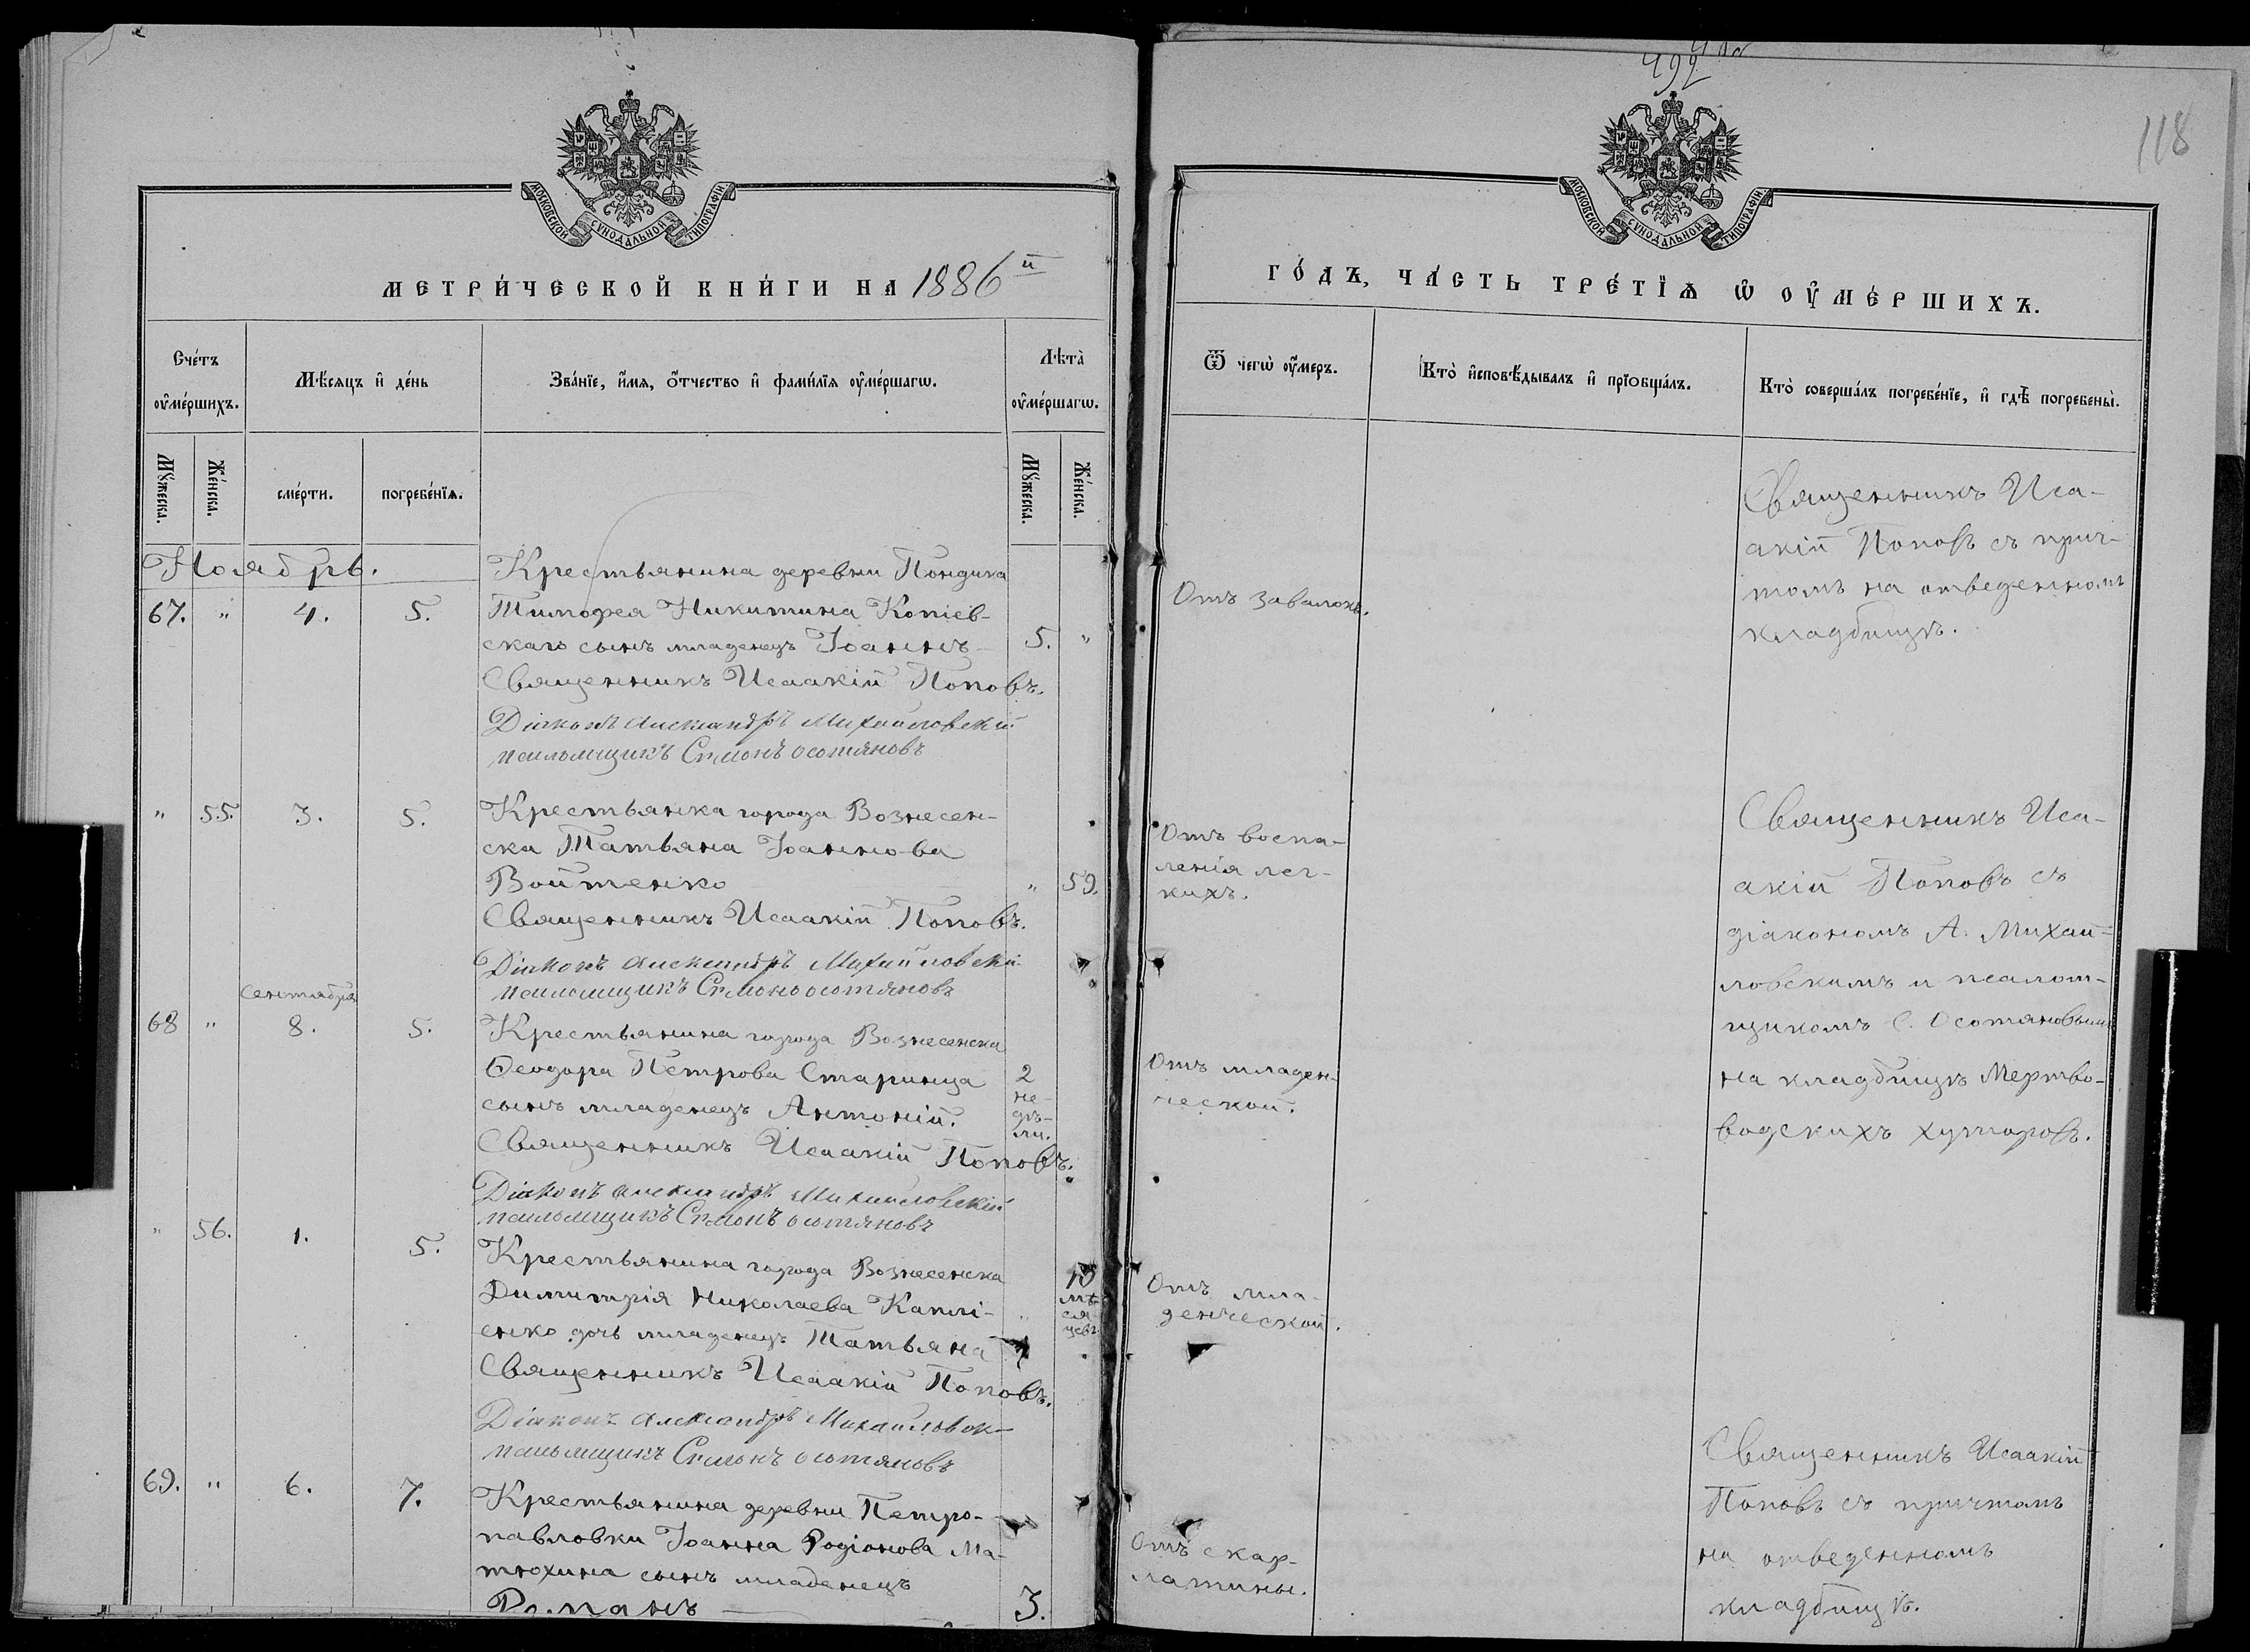 492
118
МОСКОВСКОЙ СѴНОДАЛЬНОЙ ТИПОГРАФІИ
МЕТРИ́ЧЕСКОЙ КНИ́ГИ НА 1886й
Сче́тъ ᲂу҆ме́ршихъ.
Мѣ́сяцъ и҆ де́нь
Зва́нїе, и҆́мя, ѻ҆́тчество и҆ фамі́лїя ᲂу҆ме́ршагѡ.
Лѣ́та ᲂу҆ме́ршагѡ.
Мꙋ́жеска.
Же́нска.
сме́рти.
погребе́нїя.
Мꙋ́жеска.
Же́нска.
Ноябрь.
Крестьянина деревни Пондика
67. " 4. 5. Тимофея Никитина Копіев-
скаго сынъ младенецъ Іоаннъ 5. "
Священникъ Исаакій Поповъ.
Діаконъ Александръ Михайловскій
псаломщикъ Симонъ Осотяновъ
" 55. 3. 5. Крестьянка города Вознесен-
ска Татьяна Іоаннова
Войтенко " 59.
Священникъ Исаакій Поповъ.
Діаконъ Александръ Михайловскій
псаломщикъ Симонъ Осотяновъ
сентября
68 " 8. 5. Крестьянина города Вознесенска
Ѳеодора Петрова Старинца 2
сынъ младенецъ Антоній. не-
дѣ-
ли.
Священникъ Исаакій Поповъ.
Діаконъ Александръ Михайловскій
псаломщикъ Симонъ Осотяновъ
" 56. 1. 5. Крестьянина города Вознесенска
Димитрія Николаева Каплі- " 10
мѣ-
ся-
цевъ
енко дочь младенецъ Татьяна
Священникъ Исаакій Поповъ.
Діаконъ Александръ Михайловск
псаломщикъ Симонъ Осотяновъ
69. " 6. 7. Крестьянина деревни Петро-
павловки Іоанна Родіонова Ма-
тюхина сынъ младенецъ
Романъ 3.
МОСКОВСКОЙ СѴНОДАЛЬНОЙ ТИПОГРАФІИ
ГО́ДЪ, ЧА́СТЬ ТРЕ́ТЇѦ Ѡ҆ ОУ҆МЕ́РШИХЪ.
Ѿ чегѡ̀ ᲂу҆́меръ.
Кто̀ и҆сповѣ́дывалъ и҆ прїобща́лъ.
Кто̀ соверша́лъ погребе́нїе, и҆ гдѣ̀ погребены̀.
Отъ завалокъ.
Священникъ Иса-
акій Поповъ съ прич-
томъ на отведенномъ
кладбищѣ.
Отъ воспа-
ленія лег-
кихъ.
Священникъ Иса-
акій Поповъ съ
діакономъ А. Михай-
ловскимъ и псалом-
щикомъ С. Осотяновымъ
на кладбищѣ Мертво-
водскихъ хуторовъ.
Отъ младен-
ческой.
Отъ мла-
денческой.
Отъ скар-
латины.
Священникъ Исаакій
Поповъ съ причтомъ
на отведенномъ
кладбищѣ.